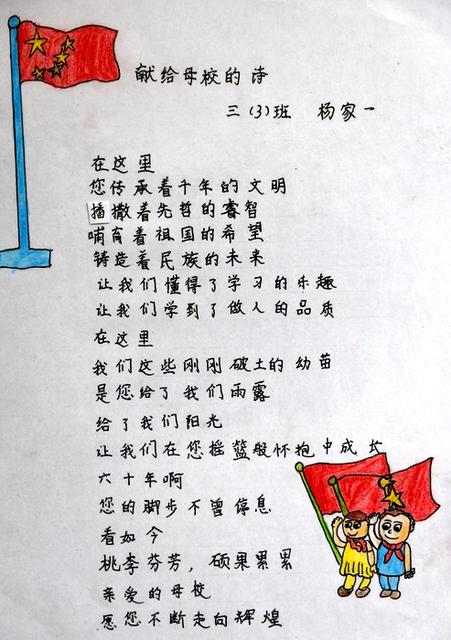 献给母校的诗
三(3)班 杨家一
在这里
您传承着千年的文明
播撒着先哲的睿智
哺育着祖国的希望
铸造着民族的未来
让我们懂得了学习的乐趣
让我们学到了做人的品质
在这里
我们这些刚刚破土的幼苗
是您给了我们雨露
给了我们阳光
让我们在您摇篮般怀抱中成长
六十年啊
您的脚步不曾停息
看如今
桃李芬芳，硕果累累
亲爱的母校
愿您不断走向辉煌